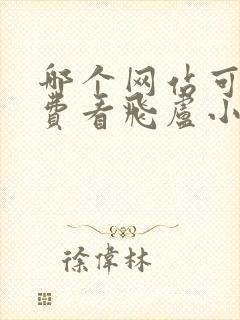 哪个网站可
費看飛盧小
徐偉林